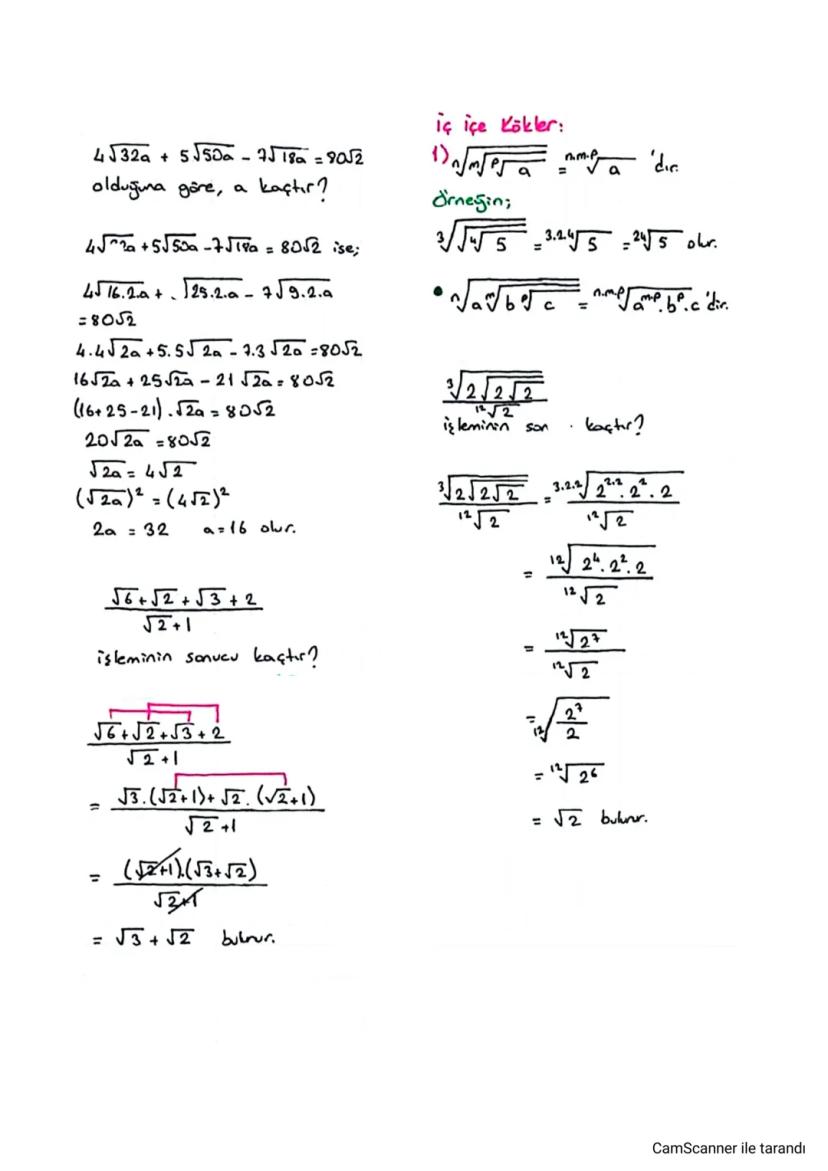 4√32a + 5√50a - 7√18a = 80√2
olduğuna göre, a kaçtır?
4√32a + 5√50a - 7√18a = 80√2 ise;
4√16.2.a + √25.2.a - 7√9.2.a
= 80√2
4.4√2a + 5.5√2a - 7.3√2a = 80√2
16√2a + 25√2a - 21√2a = 80√2
(16+25-21).√2a = 80√2
20√2a = 80√2
√2a = 4√2
(√2a)² = (4√2)²
2a = 32 a=16 olur.
√6+√2+√3+2
√2+1
işleminin sonucu kaçtır?
√6+√2+√3+2
√2+1
= √3.(√2+1)+√2.(√2+1)
√2+1
= (√2+1).(√3+√2)
√2+1
= √3+√2 bulunur.
İç içe Kökler:
1) ⁿ√ᵐ√ᵖ√a = ⁿ·ᵐ·ᵖ√a 'dır.
Örneğin;
³√√⁴√5 = ³·²·⁴√5 = ²⁴√5 olur.
• ⁿ√a ᵐ√b ᵖ√c = ⁿ·ᵐ·ᵖ√aᵐ·ᵖ.bᵖ.c 'dir.
³√2√2√2
¹²√2
işleminin son kaçtır?
³√2√2√2 = ³·²·²√2²·².2².2
¹²√2 ¹²√2
= ¹²√2⁴.2².2
¹²√2
= ¹²√2⁷
¹²√2
= ¹²√2⁷
2
= ¹²√2⁶
= √2 bulunur.
CamScanner ile tarandı